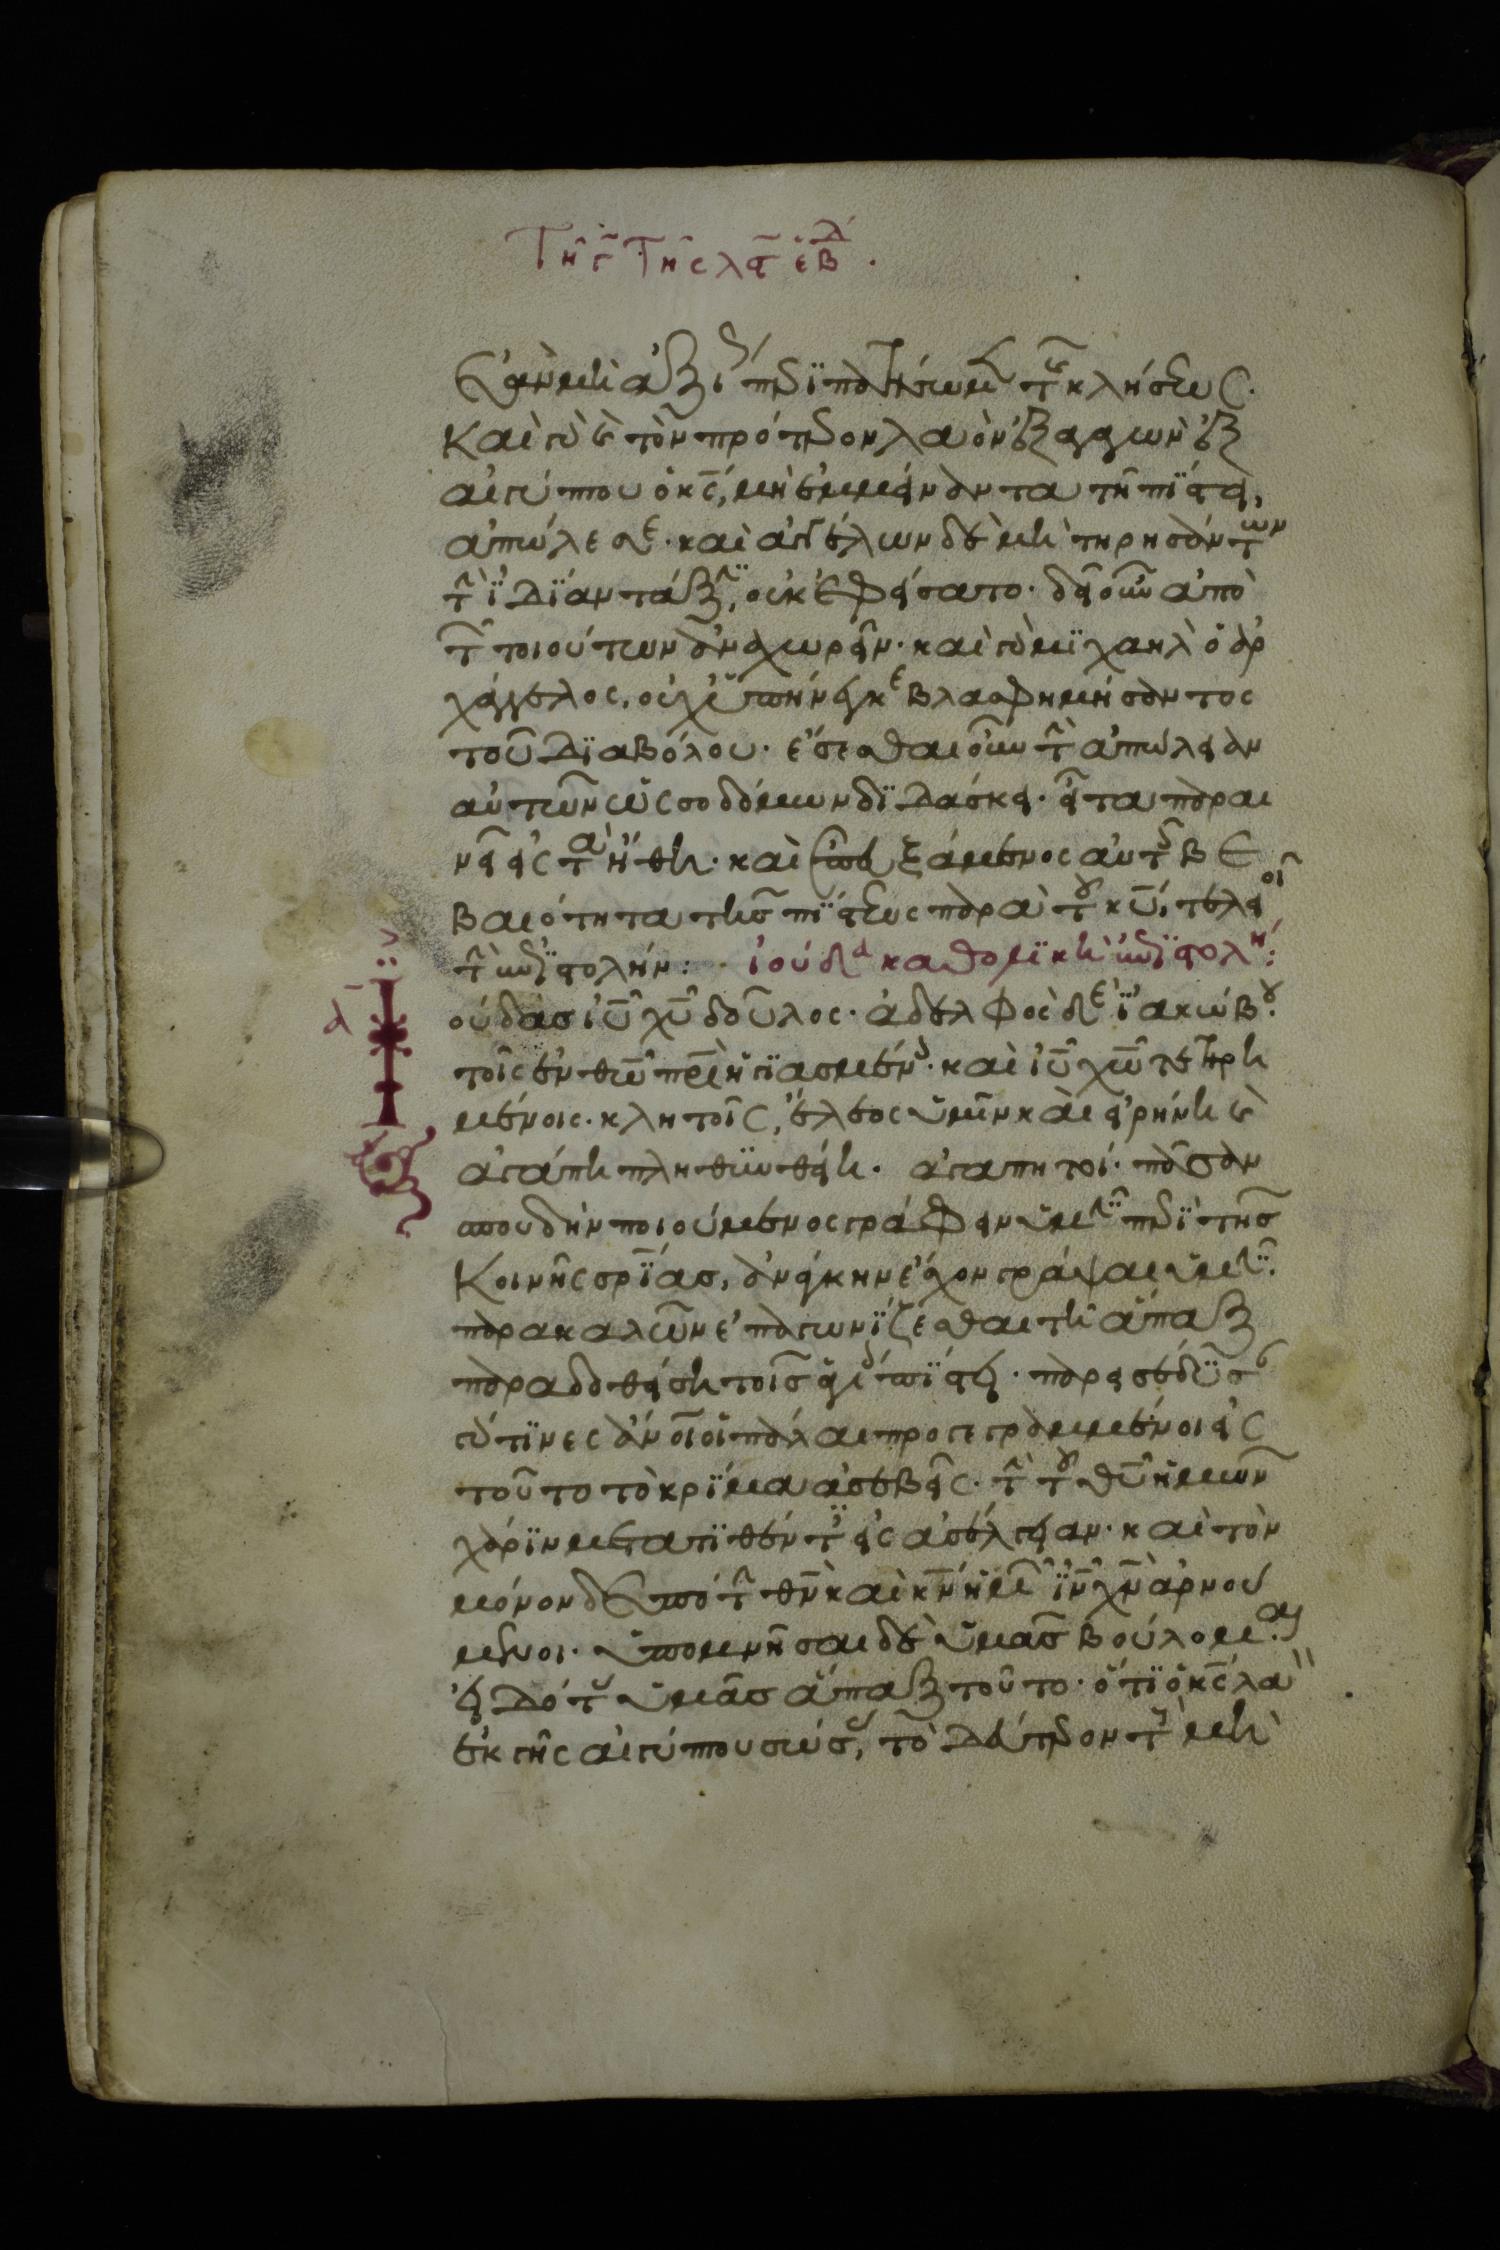 Τῆς γ̄ τῆς λς̄ ἑβδ.
ἐὰν μὴ ἀξί περιπατήσωμεν τῆς κλήσεως.
Καὶ γὰρ τὸν πρότερον λαὸν ἐξαγαγὼν ἐξ
αἰγύπτου ὁ κς̄, μὴ ἐμμείναντα τῇ πίστει,
ἀπώλεσε. καὶ ἀγγέλων δὲ μὴ τηρησάντων
τὴν ἰδίαν τάξιν, οὐκ ἐφείσατο. δεῖ οὖν ἀπὸ
τῶν τοιούτων ἀναχωρεῖν. καὶ γὰρ μιχαὴλ ὁ ἀρ
χάγγελος, οὐχ ὑπήνεγκε βλασφημήσαντος
τοῦ διαβόλου. ἔσεσθαι οὖν τὴν ἀπώλειαν
αὐτῶν ὡς σοδόμων διδάσκει. εἶτα παραι
νεῖ εἰς τὰ ἤθη. καὶ ἐπευξάμενος αὐτοῖς βε
βαιότητα τῆς πίστεως παρὰ τοῦ κῡ, τελειοῖ
τὴν ἐπιστολήν: ἰούδα καθολικὴ ἐπιστολή:
ούδας ἰῡ χῡ δοῦλος. ἀδελφὸς δὲ ἰακώβου.
τοῖς ἐν θω̄ πρ̄ὶ ἡγιασμένοις. καὶ ἰῡ χω̄ τετηρη
μένοις. κλητοῖς, ἔλεος ὑμῖν καὶ εἰρήνη καὶ
ἀγάπη πληθυνθείη. ἀγαπητοί. πᾶσαν
σπουδὴν ποιούμενος γράφειν ὑμῖν περὶ τῆς
κοινῆς σρ̄ίας, ἀνάγκην ἔσχον γράψαι ὑμῖν.
παρακαλῶν ἐπαγωνίζεσθαι τῇ ἅπαξ
παραδοθείσῃ τοῖς ἁγίοις πίστει. παρεισέδυσαν
γάρ τινες ἄνοι οἱ πάλαι προγεγραμμένοι εἰς
τοῦτο τὸ κρίμα ἀσεβεῖς. τὴν τοῦ θῡ ἡμῶν
χάριν μετατιθέντες εἰς ἀσέλγειαν. καὶ τὸν
μόνον δεσπότην θν̄ καὶ κν̄ ἡμῶν ἰν̄ χν̄ ἀρνού
μενοι. ὑπομνῆσαι δὲ ὑμᾶς βούλομαι.
εἰδότας ὑμᾶς ἅπαξ τοῦτο. ὅτι ὁ κς̄ λαὸν
ἐκ γῆς αἰγύπτου σώσας, τὸ δεύτερον τοὺς μὴ